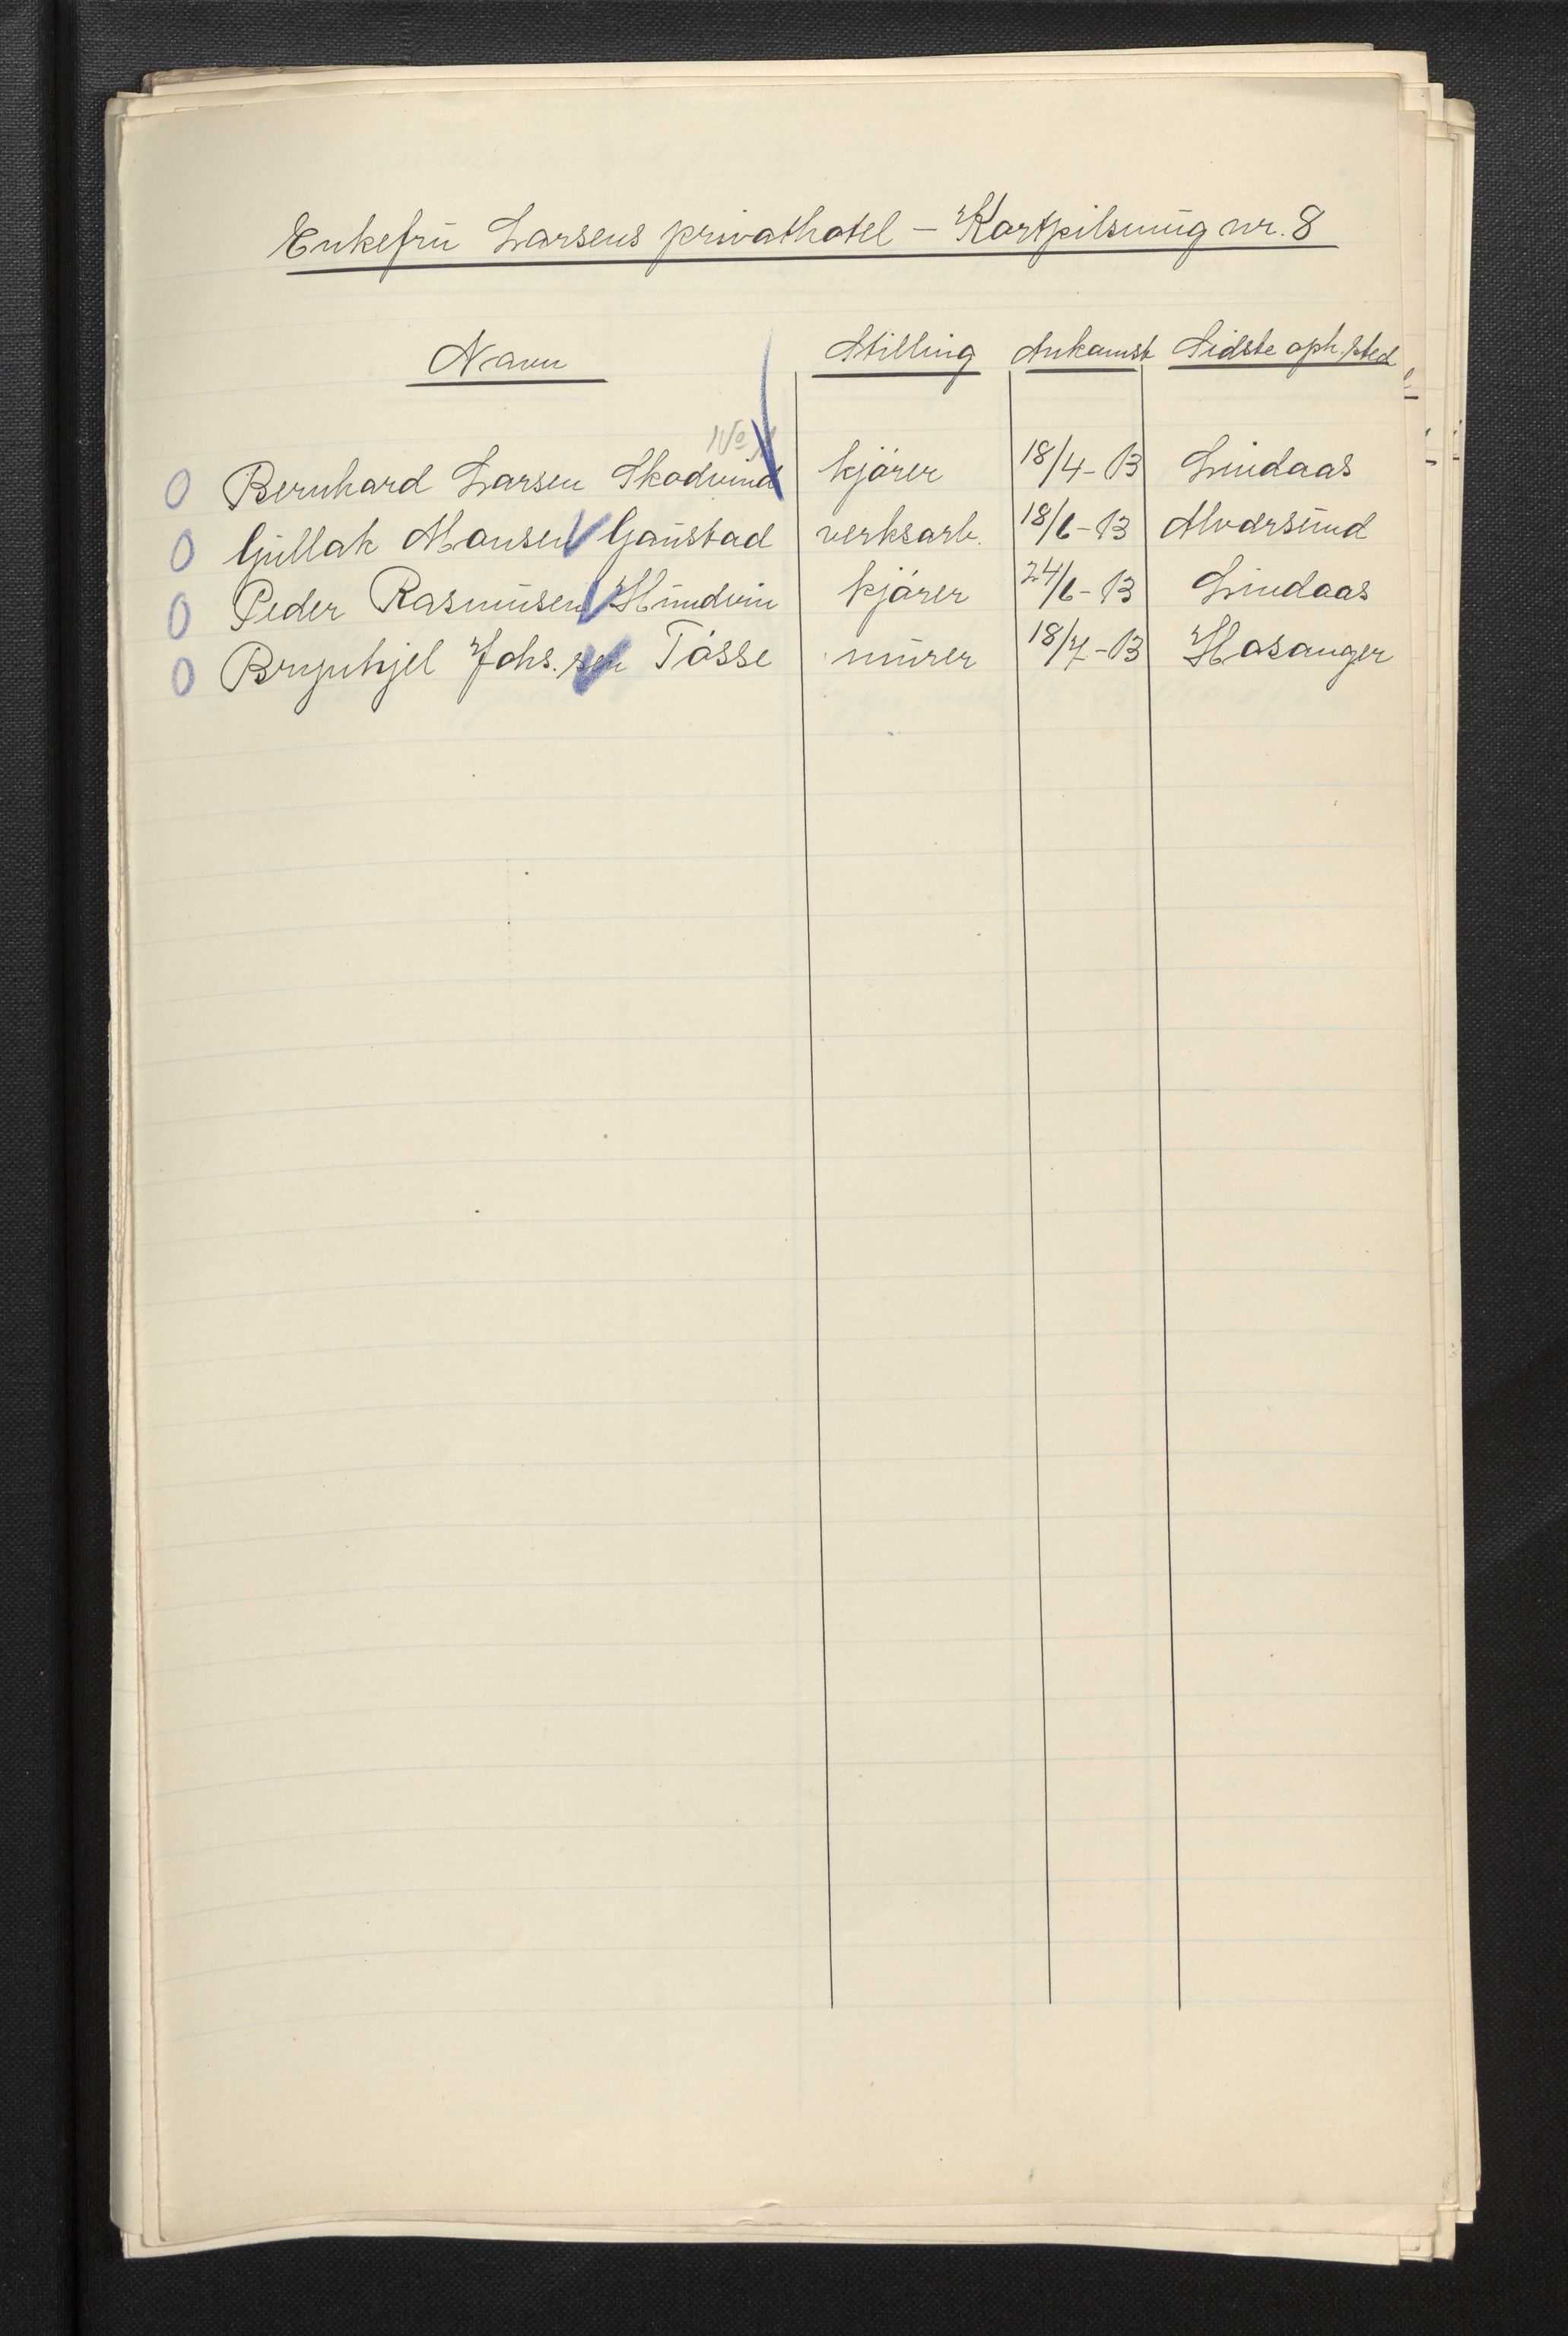 Enkefru Larsens privathotel – Kortpilsmug nr. 8
Navn Stilling Ankomst Sidste oph.sted
No
0 Bernhard Larsen Skodvind kjörer 18/4-13 Lindaas
0 Gullak Monsen Gaustad verksarb. 18/6-13 Alversund
0 Peder Rasmusen Hundvin kjörer 24/6-13 Lindaas
0 Brynhjel Johs.sen Tösse murer 18/7-13 Hosanger